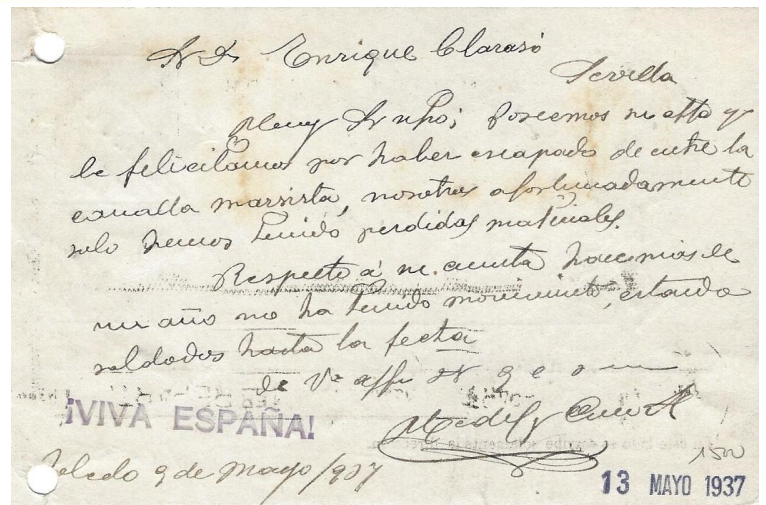 Sr Dn Enrique Clarasó
Sevilla
Muy Sr nño; Poseemos su atta y
le felicitamos por haber escapado de entre la
canalla marsista, nosotros afortunadamente
solo hemos tenido perdidas materiales.
Respecto á su cuenta hace mas de
un año no ha tenido movimiento, estando
saldados hasta la fecha
de Vs affi ss q e s m
¡VIVA ESPAÑA!
Toledo 9 de Mayo/937
1500
13 MAYO 1937